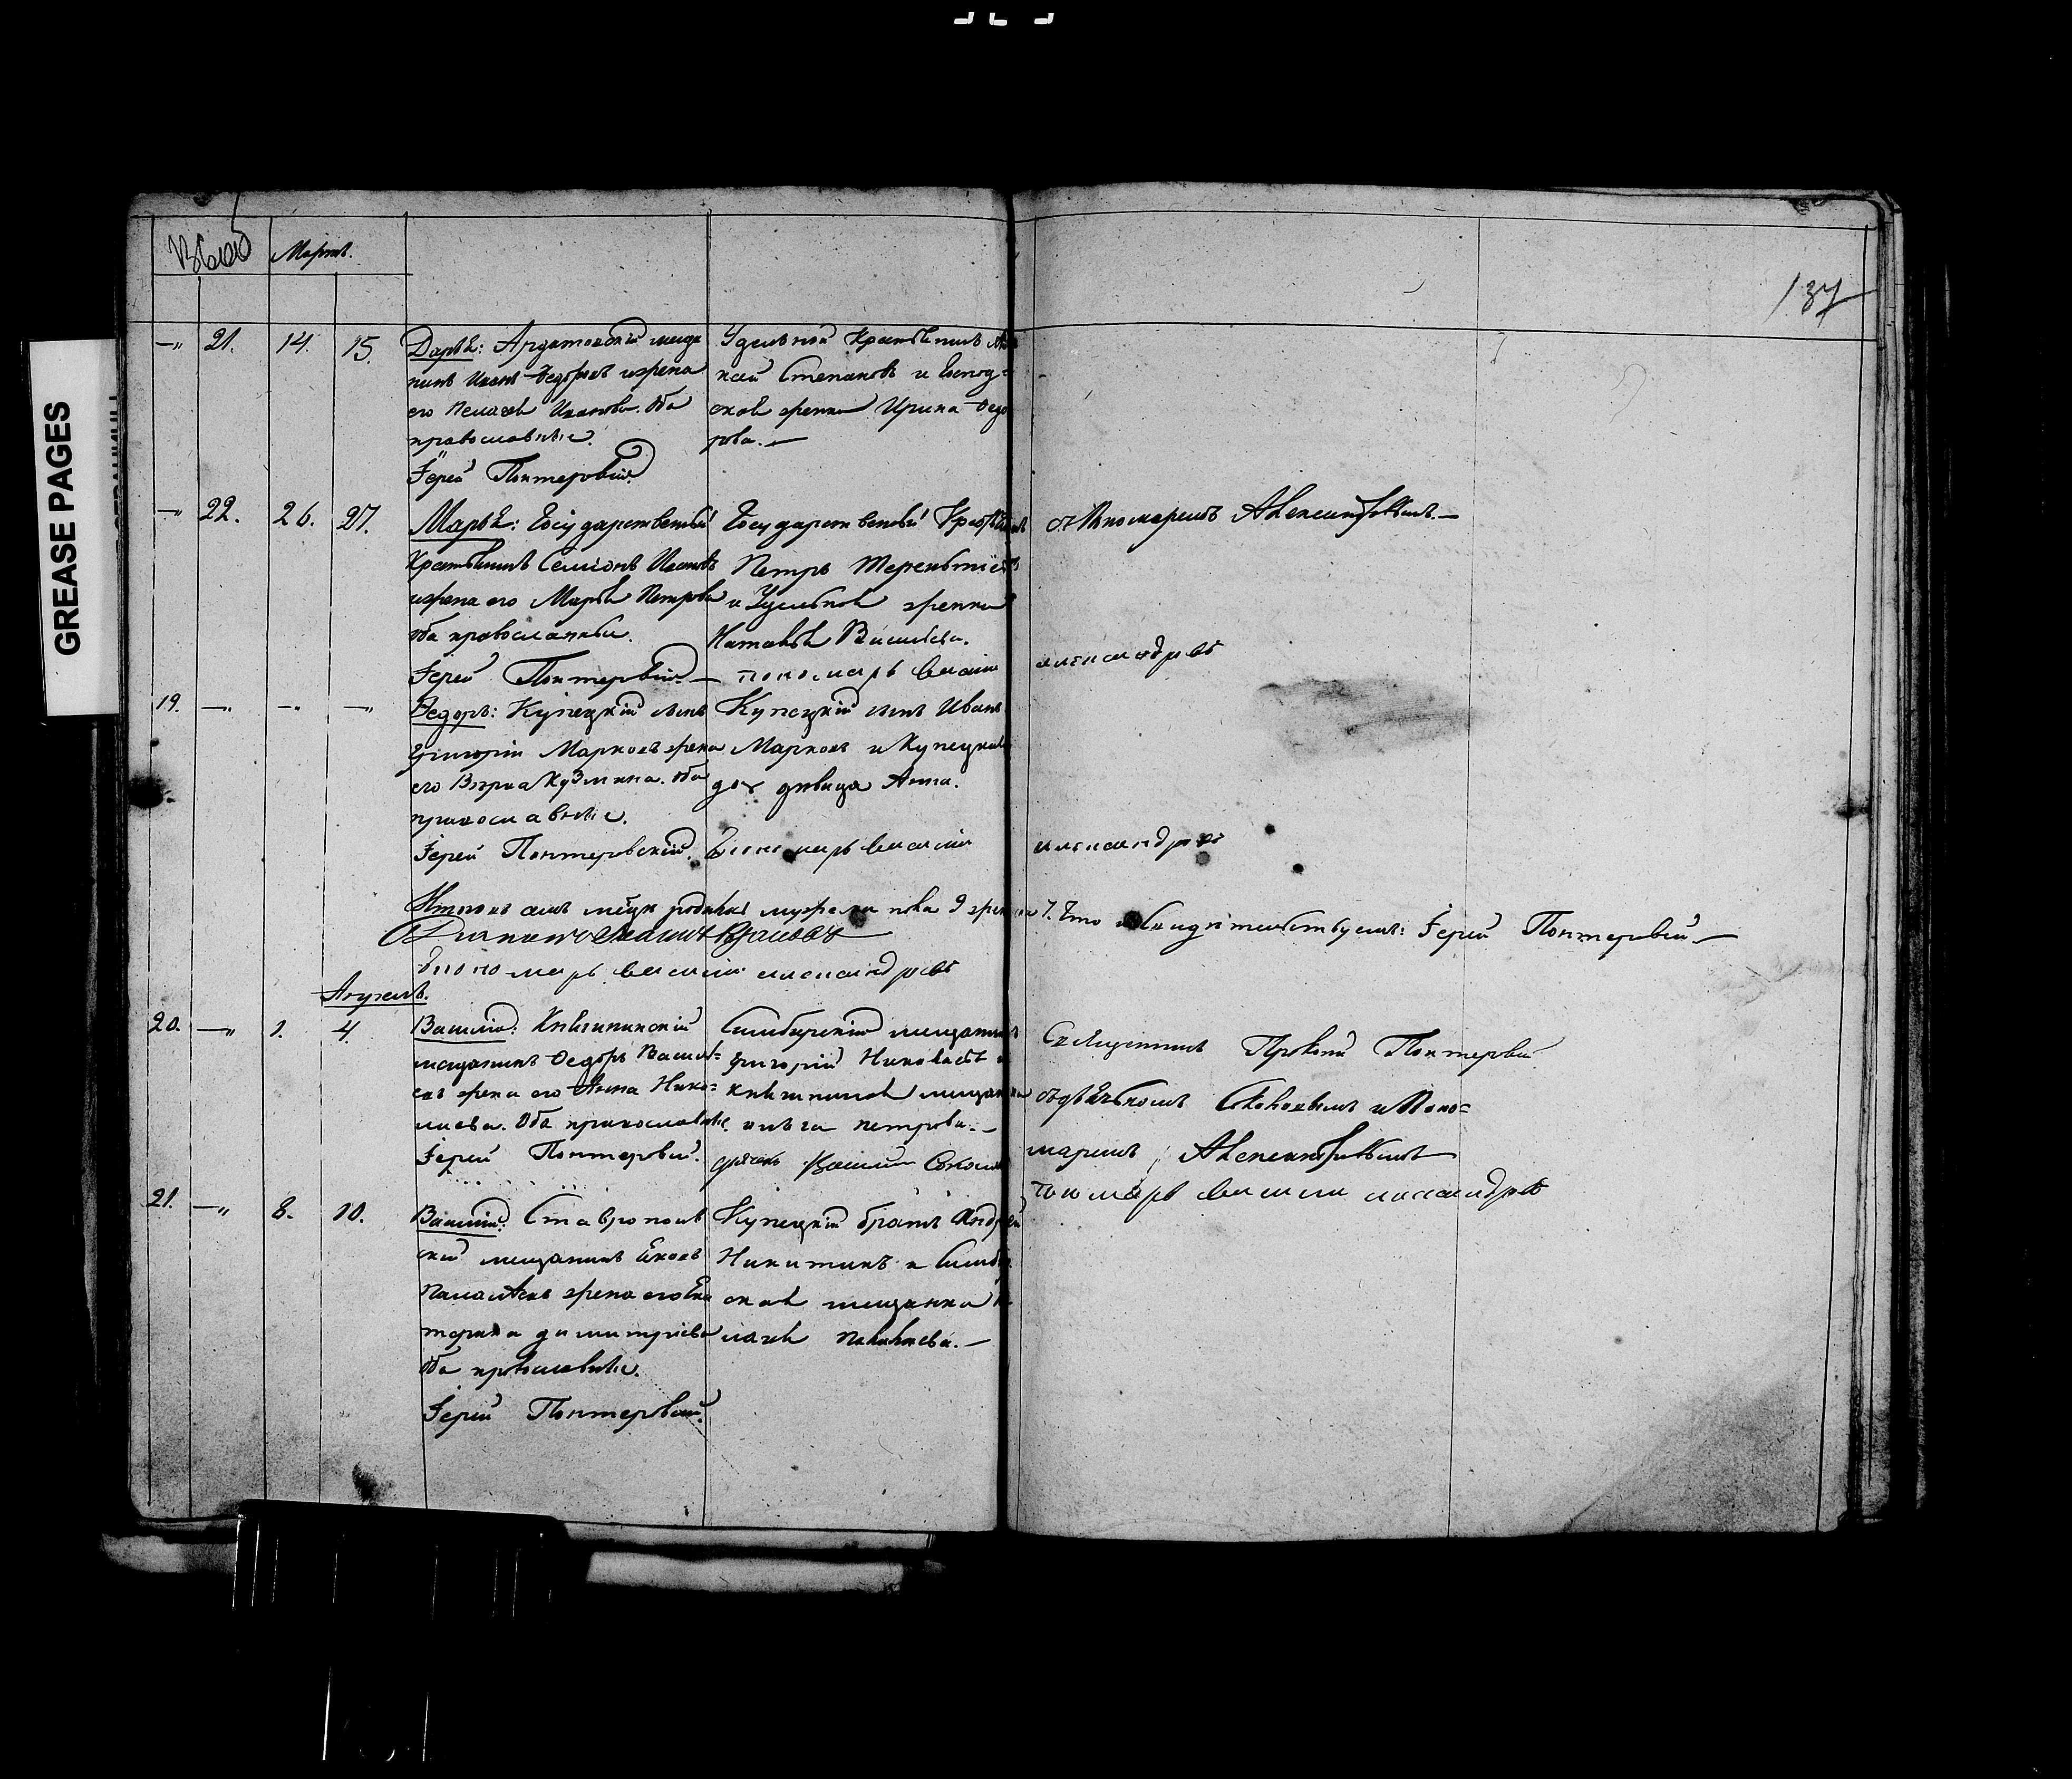 GREASE PAGES
Мартъ.
137
— 21. 14. 15. Дарья: Ардатовскій меща
нинъ Иванъ Федоровъ и жена
его Пелагея Иванова. Оба
православные.
Іерей Понтеровскій.
Удельной Крестьянинъ
Степановъ и Господ=
ская женка Ирина Федо
рова. —
— 22. 26. 27. Марья: Государственный
Крестьянинъ Семіонъ Ивановъ
и жена его Марья Петрова
Оба православные.
Іерей Понтеровскій —
Государственный Крестьянинъ
Петръ Терентьіевъ
и Удельная женка
Наталья Васильева.
пономарь василий
съ Пономаремъ Александровымъ. —
александровъ
19. — — — Федоръ: Купецкій сынъ
Григорій Марковъ жена
его Вѣра Кузмина. Оба
православные.
Іерей Понтеровскій.
Купецкій сынъ Иванъ
Марковъ и Купецкая
доч девица Анна.
пономарь василий
александровъ
Итого въ семъ месце родилось мужеска пола 9 женска 7. Что и свидетельствуемъ: Іерей Понтеровскій —
пономарь василий александровъ
Апрель.
20. — 1. 4. Василій: Княгининскій
мещанинъ Федоръ Василь=
евъ жена его Анна Нико=
лаева. Оба православные.
Іерей Понтеровскій.
Симбирскій мещанинъ
Григорій Николаевъ и
княгининская мещанка
Петрова. —
дьячекъ Василий Соколовъ
Священникъ Понтеровскій
съ дьячкомъ Соколовымъ и Поно=
маремъ Александровымъ
пономарь василий александровъ
21. — 8. 10. Василій: Ставрополь
скій мещанинъ Яковъ
жена его Ека
терина димитріева
Оба православные.
Іерей Понтеровскій.
Купецкій братъ Андрей
Никитинъ и Симбир
ская мещанка